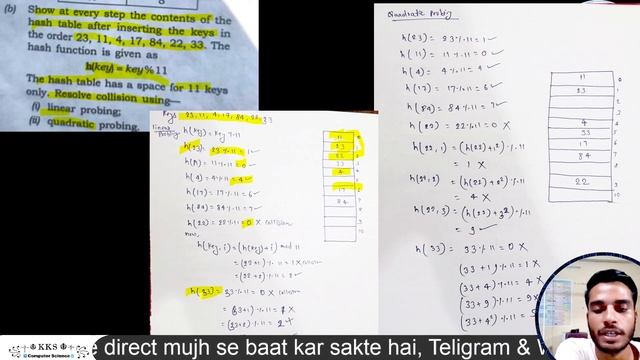 (b) Show at every step the contents of the
hash table after inserting the keys in
the order 23, 11, 4, 17, 84, 22, 33. The
hash function is given as
h(key) = key % 11
The hash table has a space for 11 keys
only. Resolve collision using—
(i) linear probing;
(ii) quadratic probing.
Keys 23, 11, 4, 17, 84, 22, 33
linear Probing
h(key) = key % 11
h(23) = 23 % 11 = 1 ✓
h(11) = 11 % 11 = 0 ✓
h(4) = 4 % 11 = 4 ✓
h(17) = 17 % 11 = 6 ✓
h(84) = 84 % 11 = 7 ✓
h(22) = 22 % 11 = 0 X collision
now,
h(key, i) = (h(key) + i) mod 11
= (22+1) % 11 = 1 X collision
= (22+2) % 11 = 2 ✓
h(33) = 33 % 11 = 0 X collision
= (33+1) % 11 = 1 X
= (33+2) % 11 = 2 X
11 0
23 1
22 2
33 3
4
17
84 7
8
9
10
Quadratic Probing
h(23) = 23 % 11 = 1 ✓
h(11) = 11 % 11 = 0 ✓
h(4) = 4 % 11 = 4 ✓
h(17) = 17 % 11 = 6 ✓
h(84) = 84 % 11 = 7 ✓
h(22) = 22 % 11 = 0 X
h(22, 1) = (h(22) + 1²) % 11
= 1 X
h(22, 2) = (h(22) + 2²) % 11
= 4 X
h(22, 3) = (h(22) + 3²) % 11
= 9 ✓
h(33) = 33 % 11 = 0 X
(33 + 1) % 11 = 1 X
(33 + 4) % 11 = 4 X
(33 + 9) % 11 = 9 X
(33 + 4²) % 11 = 5
11 0
23 1
2
3
4 4
33 5
17 6
84 7
8
22 9
10
KKS
Computer Science
direct mujh se baat kar sakte hai, Teligram &